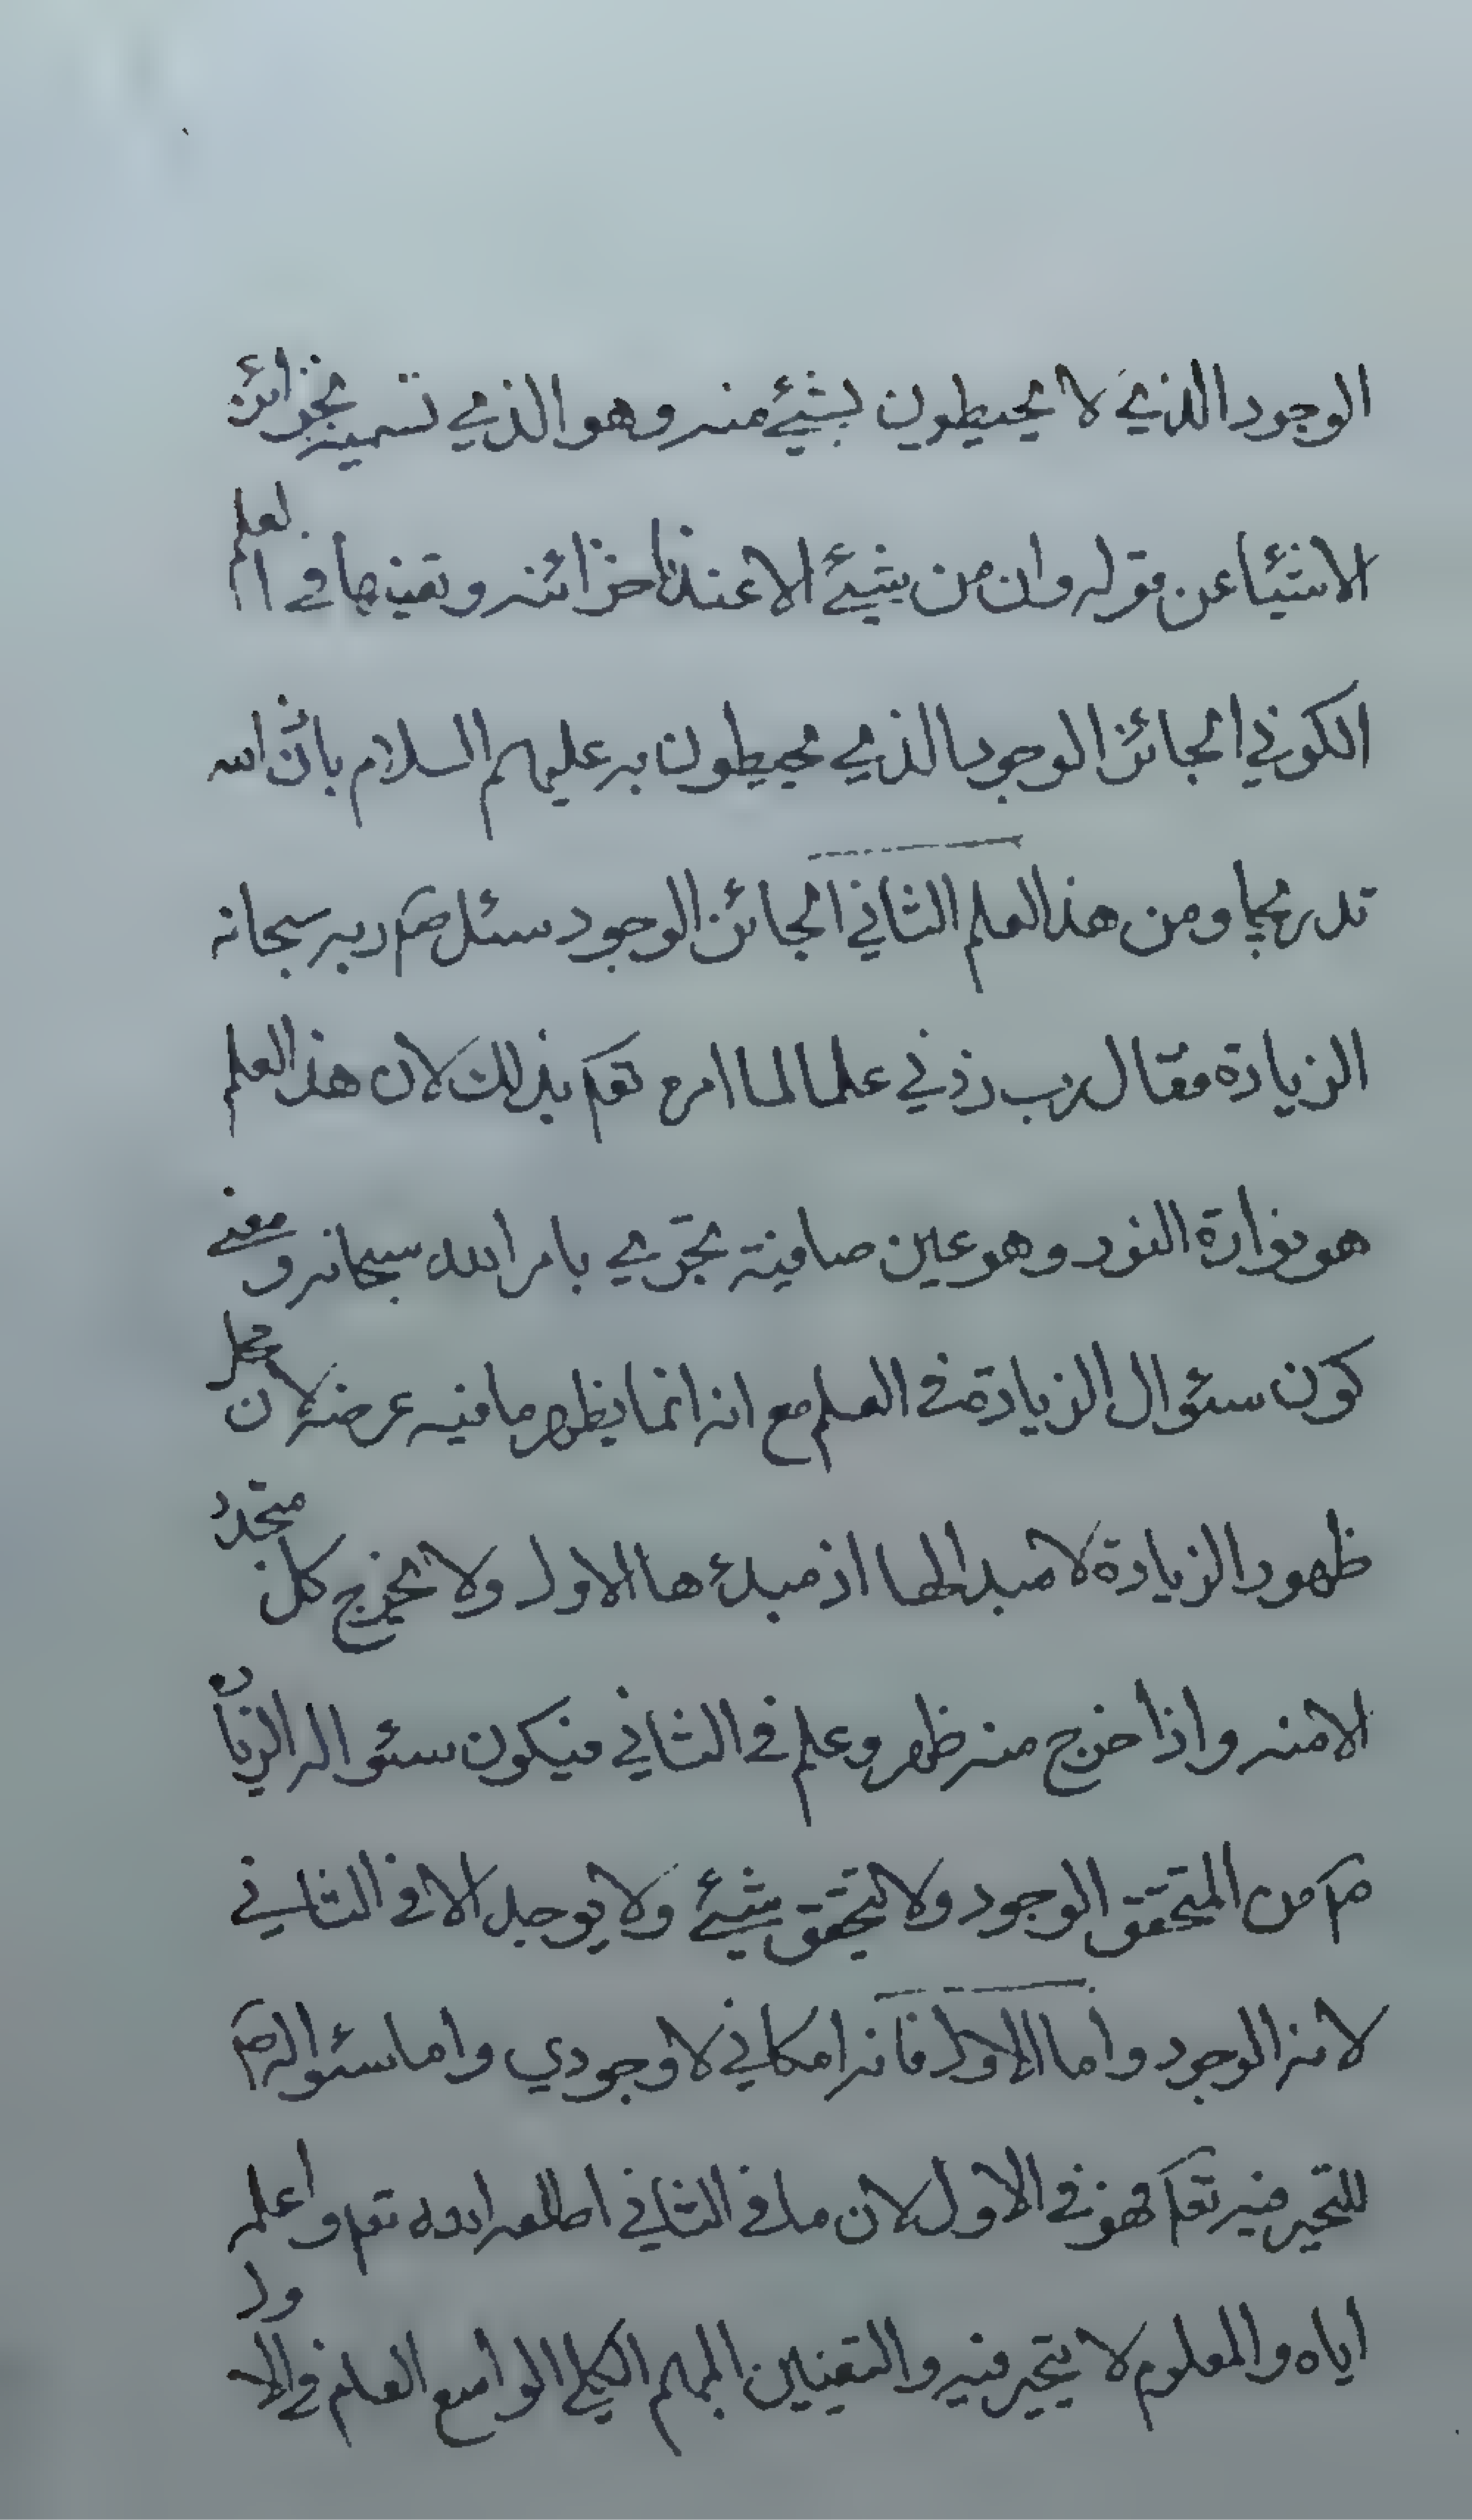 الوجود الذي لا يحيطون بشيئ منه وهو الذي تسميته بخزائن
الاشياء عن قوله وان من شيئ الا عندنا خزائنه وتعينها في العلم
الكوني الجائز الوجود الذي يحيطون به عليهم السلام بأذن الله
تدريجا ومن هذا العلم الثاني الجائز الوجود سئل صم ربه سبحانه
الزيادة فقال رب زدني علما لما امره تعم بذلك لان هذا العلم
هو فوارة النور وهو عين صافية تجري بامر الله سبحانه ومعنى
كون سئوال الزيادة في العلم مع انه انما يظهر ما فيه عرضه لان محل
ظهور الزيادة لا مبدا لها اذ مبدءها الاول ولا يخرج كل متجدد
الا منه واذا خرج منه ظهر وعلم في الثاني فيكون سئواله الزياد
صم من المتحقق الوجود ولا يتحقق شيئ ولا يوجد الا في الثاني
لانه الوجود واما الاول فانه امكاني لا وجودي واما سئواله صم
للتحير فيه تعم فهو في الاول لان ما في الثاني اطلعه الله تعم واعلمه
اياه والمعلوم لا يتحير فيه والتعيين المبهم الكلي الواسع العلم في الاول